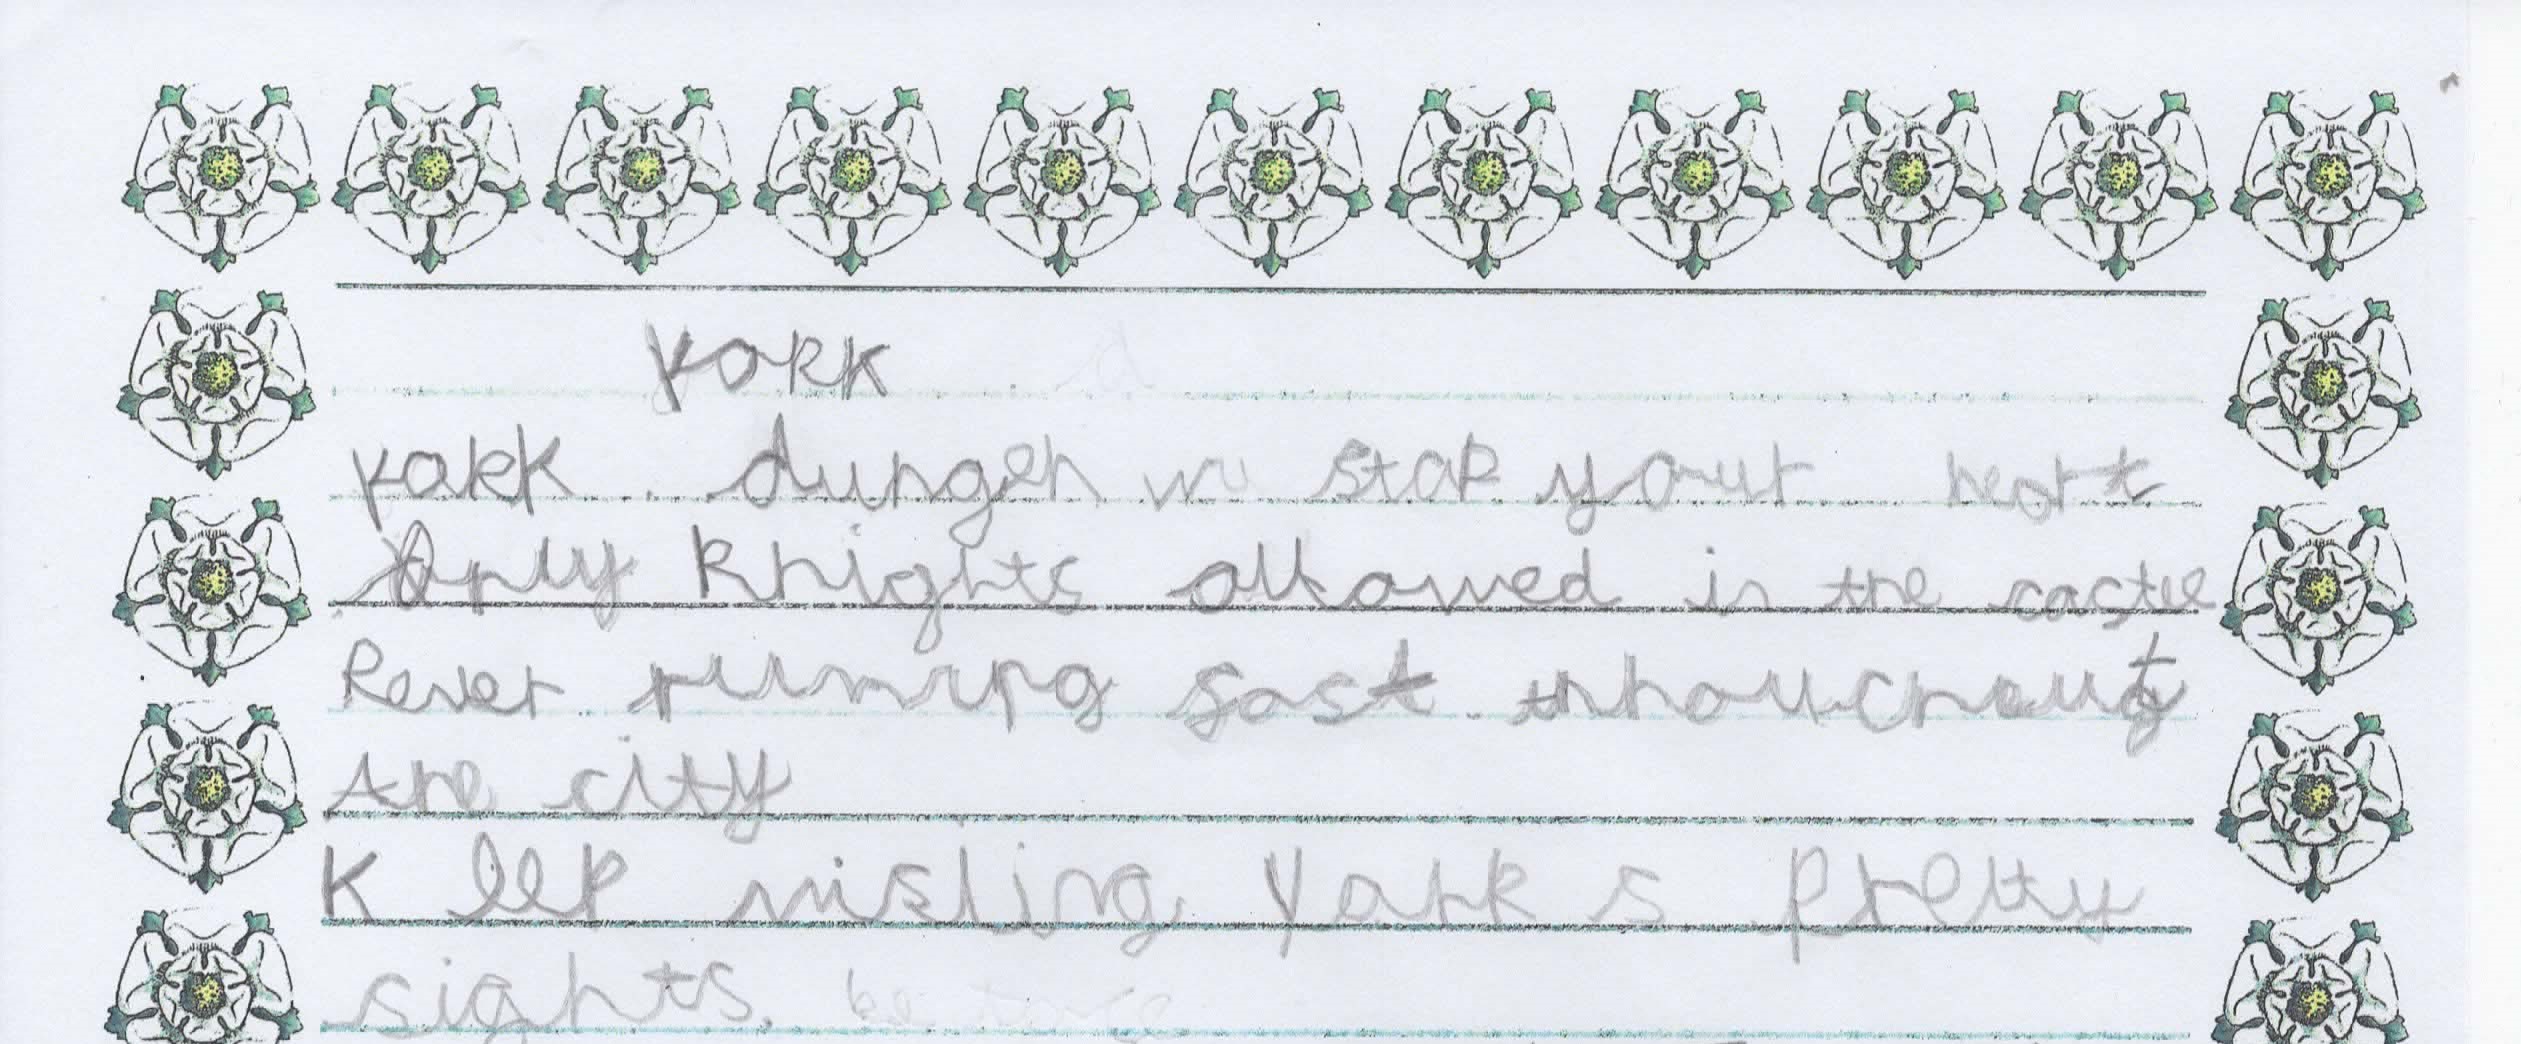 York
York dungen w stop your heart
Only knights allowed in the castle
River running fast thhouchout
the city
Keep visiting York s pretty
sights.